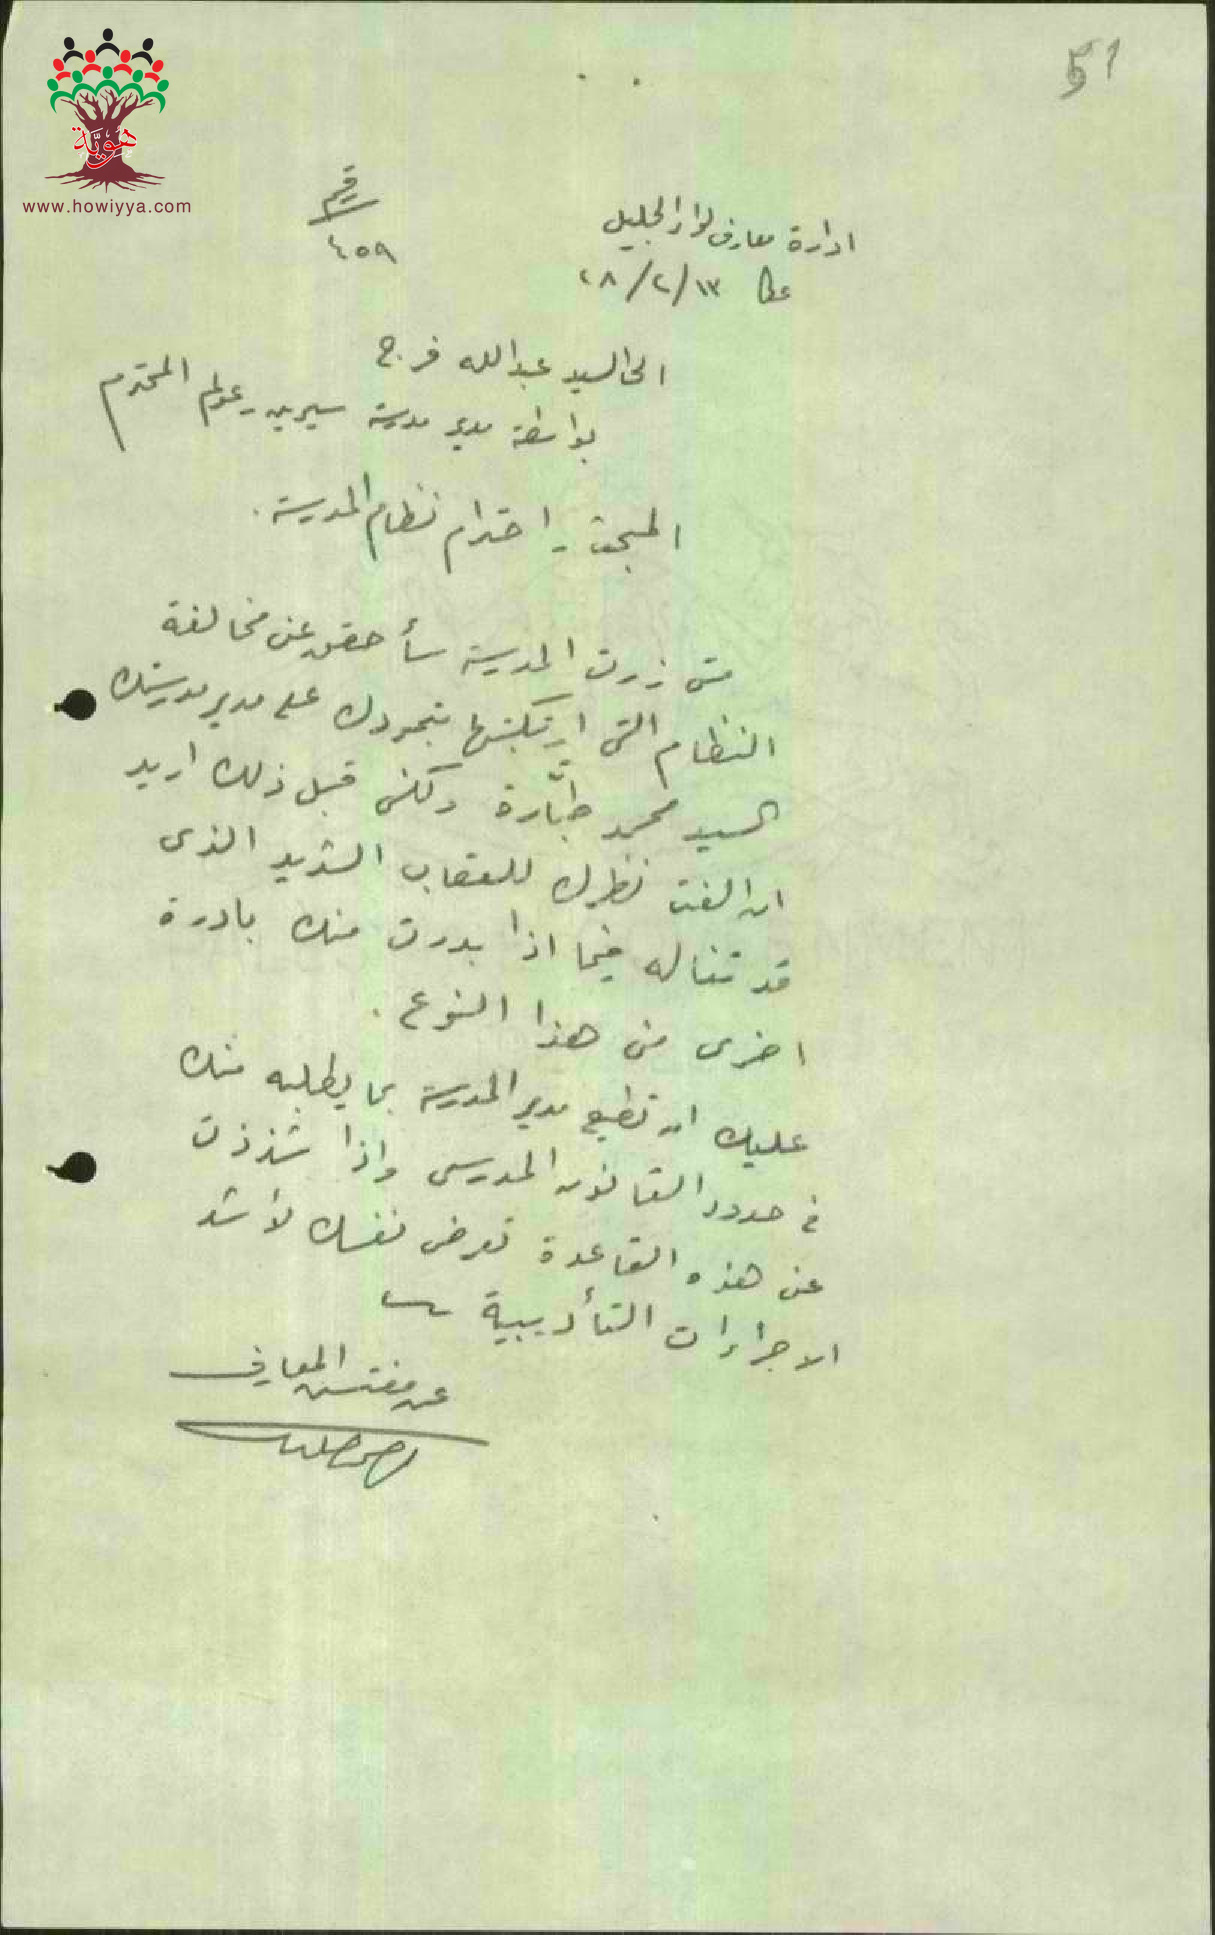 51
هوية
www.howiyya.com
رقم
٤٥٩
ادارة معارف لواء الجليل
عكا ١٣/٢/٤٨
الى السيد عبدالله فرج
بواسطة مدير مدرسة سيرين المحترم
المبحث - احترام نظام المدرسة.
متى زرت المدرسة سأحقق عن مخالفة
النظام التي ارتكبتها بتمردك على مدير مدرستك
السيد محمد طبّارة ولكنى قبل ذلك اريد
ان الفت نظرك للعقاب الشديد الذى
قد تناله فيما اذا بدرت منك بادرة
اخرى من هذا النوع.
عليك ان تطيع مدير المدرسة بما يطلبه منك
في حدود القانون المدرسى واذا شذذت
عن هذه القاعدة تعرض نفسك لأشد
الاجراءات التأديبية
عن مفتش المعارف